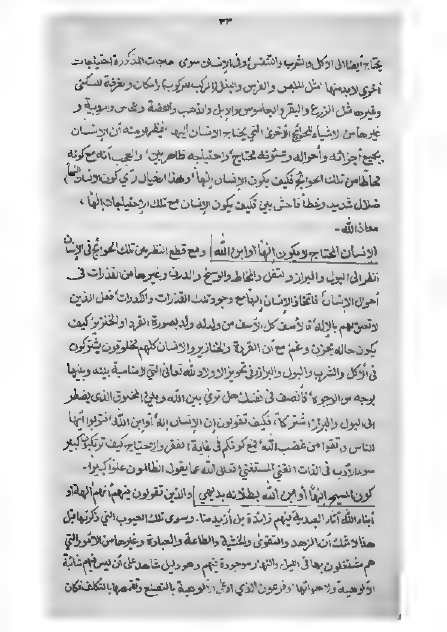 ٣٣
يحتاج أيضا الى الاكل والشرب والتنفس وفى الإنسان سوى حاجات المذكورة احتياجات
أخرى لابد منها مثل الملبس والفرس والبغل المركب للركوب ومكان وغرفة للسكنى
وغيرها مثل الزرع والبقر والجاموس والإبل والذهب والفضة و
غيرها من الأشياء للحوائج الأخرى التي يحتاج الإنسان إليها فظهر منه أن الإنسان
بجميع أجزائه وأحواله وشئونه محتاج واحتياجه ظاهر بين والعجب أنه مع كونه
محاطا من تلك الحوائج فكيف يكون الإنسان إلها وهذا الخيار أي كون الإنسان إلها
ضلال شديد وخطأ فاحش بين فكيف يكون الإنسان مع تلك الإحتياجات إلها،
معاذ الله.
الإنسان المحتاج لا يكون إلها أو ابن الله ومع قطع النظر من تلك الحوائج في الإنسان
انظر الى البول والبراز والتفل والمخاط والوسخ والدرن وغيرها من القذرات فى
أحوال الإنسان فاتخاذ الإنسان إلها مع وجود تلك القذرات والكدورات فعل الذين
لا تعلق لهم بالإله فالأسف كل الأسف من ولد له ولد بصورة القرد أو الخنزير كيف
يكون حاله بحزن وغم مع أن القردة والخنازير والإنسان كلهم مخلوقون يشتركون
فى الأكل والشرب والبول والبراز فى تجويز الاولاد لله تعالى التي لا مناسبة بينه وبينها
بوجه من الوجوه فأنصف فى نفسك هل ترى بين الله وبين المخلوق الذى يضطر
الى البول والبراز اشتراكا، فكيف تقولون إن الإنسان إله أو ابن الله فتوبوا أيها
الناس واتقوا من غضب الله مع كونكم فى غاية الفقر والإحتياج كيف ترتكبون كبير
سوء الأدب فى الذات الغني المستغني تعالى الله عما يقول الظالمون علوا كبيرا.
كون المسيح إلها أو ابن الله بطلانه بديهي والذين تقولون فيهم أنهم آلهة أو
أبناء الله آثار العبدية فيهم زائدة بل أزيد منا. وسوى تلك العيوب التي ذكرتها قبل
هذا لا شك أن الزهد والتقوى والخشية والطاعة والعبادة وغيرها من الأمور التي
هم مشتغلون بها فى الليل والنهار موجودة فيهم وهو دليل شاهد على أن ليس فيهم شائبة
الألوهية ولا هوائها وفرعون الذي ادعى الألوهية بالتصنع وتقمصها بالتكلف فكان